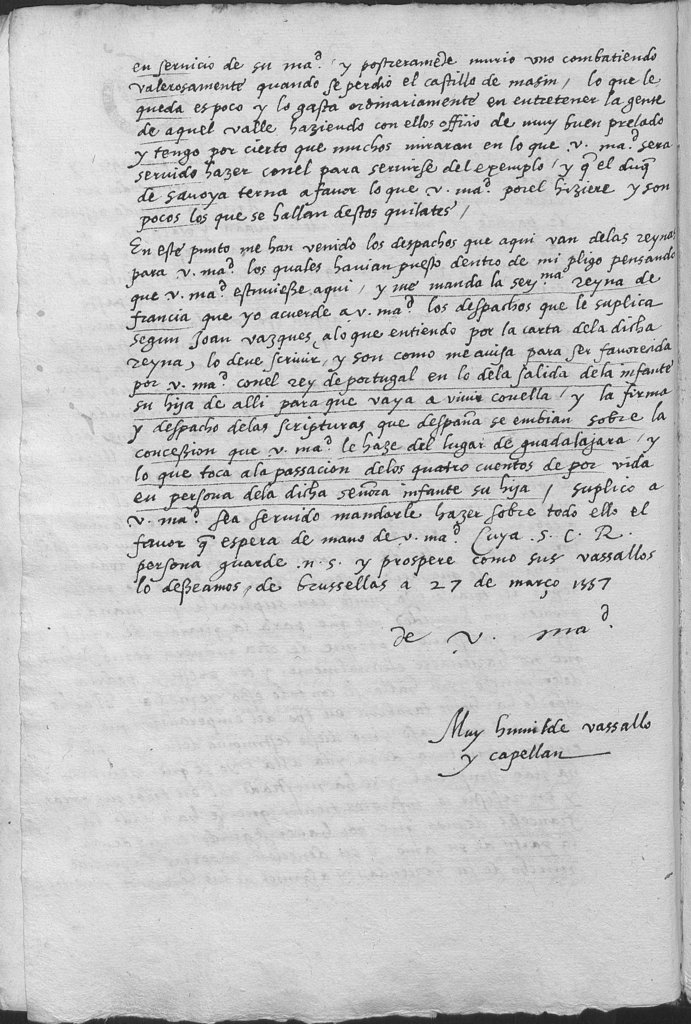 en servicio de su ma.d / y postreramẽte murio uno combatiendo
valerosamente quando se perdio el castillo de masin / lo que le
queda es poco y lo gasta ordinariamente en entretener la gente
de aquel valle haziendo con ellos officio de muy buen prelado
y tengo por cierto que muchos miraran en lo que v. ma.d sera
servido hazer conel para servirse del exemplo / y q̃ el duq̃
de savoya terna a favor lo que v. ma.d porel hiziere y son
pocos los que se hallan destos quilates /
En este punto me han venido los despachos que aqui van delas reynas
para v. ma.d los quales havian puesto dentro de mi pligo pensando
que v. ma.d estuviesse aqui / y me manda la ser.ma reyna de
francia que yo acuerde a v. ma.d los despachos que le suplica
segun Joan vazques, alo que entiendo por la carta dela dicha
reyna, lo deve scrivir / y son como me avisa para ser favoreçida
por v. ma.d conel rey de portugal en lo dela salida dela infante
su hija de alli para que vaya a vivir conella / y la firma
y despacho delas scripturas que despaña se embian sobre la
concession que v. ma.d le haze del lugar de guadalajara / y
lo que toca ala passacion delos quatro cuentos de por vida
en persona dela dicha señora infante su hija / suplico a
v. ma.d sea servido mandarle hazer sobre todo ello el
favor q̃ espera de mano de v. ma.d Cuya .S. C. R.
persona guarde .n. s. y prospere como sus vassallos
lo desseamos, de brussellas a 27 de março 1557
de v. ma.d
Muy humilde vassallo
y capellan